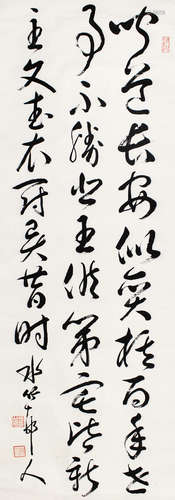 闻道长安似奕棋百年世
事不胜悲王侯第宅皆新
主文武衣冠异昔时 水竹邨人